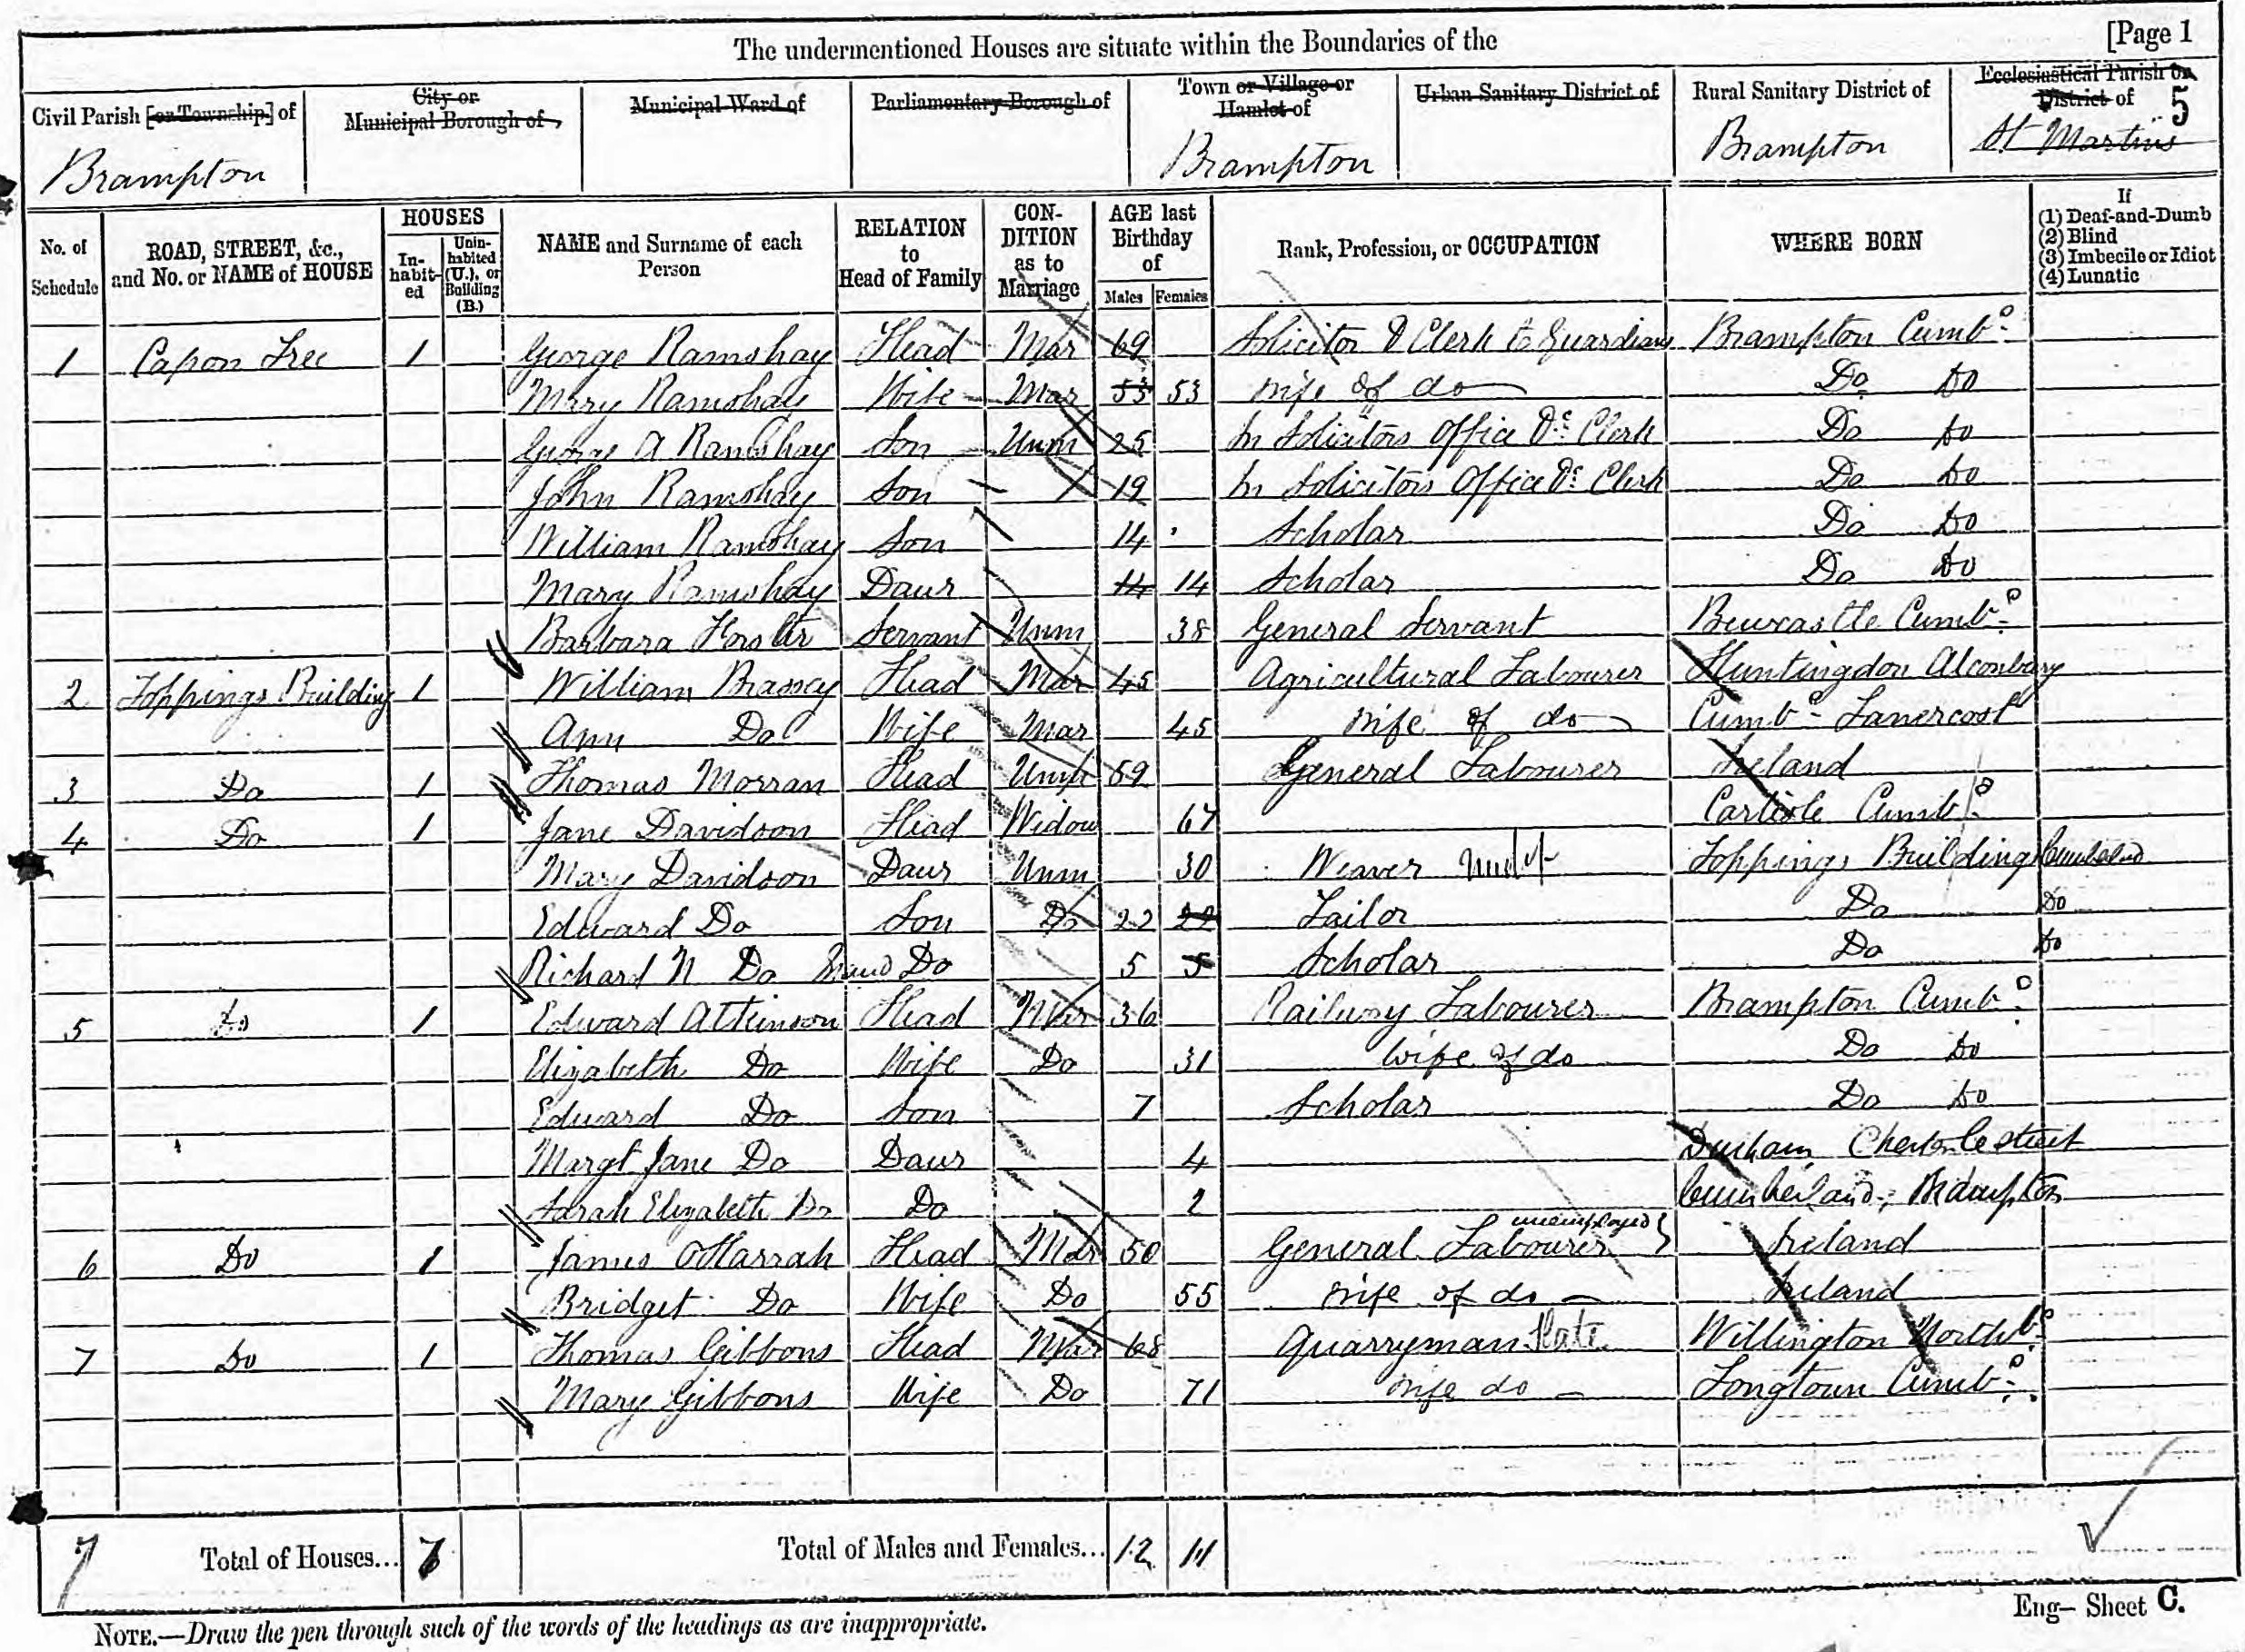 The undermentioned Houses are situate within the Boundaries of the [Page 1
Civil Parish [or Township] of
City or Municipal Borough of
Municipal Ward of
Parliamentary Borough of
Town or Village or Hamlet of
Urban Sanitary District of
Rural Sanitary District of
Ecclesiastical Parish or District of
5
Brampton Brampton Brampton St Martins
No. of Schedule
ROAD, STREET, &c., and No. or NAME of HOUSE
HOUSES
In-habit-ed
Unin-habited (U.), or Building (B.)
NAME and Surname of each Person
RELATION to Head of Family
CON-DITION as to Marriage
AGE last Birthday of
Males Females
Rank, Profession, or OCCUPATION
WHERE BORN
If
(1) Deaf-and-Dumb
(2) Blind
(3) Imbecile or Idiot
(4) Lunatic
1 Capon Tree 1 George Ramshay Head Mar 69 Solicitor & Clerk to Guardians Brampton Cumbd
Mary Ramshay Wife Mar 53 53 Wife of do Do Do
George A Ramshay Son Unm 25 In Solicitors Office Clerk Do Do
John Ramshay Son 19 In Solicitors Office Clerk Do Do
William Ramshay Son 14 Scholar Do Do
Mary Ramshay Daur 14 14 Scholar Do Do
Barbara Forster Servant Unm 38 General Servant Bewcastle Cumbd
2 Toppings Building 1 William Brassey Head Mar 45 Agricultural Labourer Huntingdon Alconbury
Ann Do Wife Mar 45 Wife of do Cumbd Lanercost
3 Do 1 Thomas Morran Head Unm 59 General Labourer Ireland
4 Do 1 Jane Davidson Head Widow 67 Carlisle Cumbd
Mary Davidson Daur Unm 30 Weaver Toppings Buildings Cumberland
Edward Do Son Do 22 22 Tailor Do Do
Richard N Do Grand Do 5 5 Scholar Do Do
5 Do 1 Edward Atkinson Head Mar 36 Railway Labourer Brampton Cumbd
Elizabeth Do Wife Do 31 Wife of do Do Do
Edward Do Son 7 Scholar Do Do
Margt Jane Do Daur 4 Durham Chester le Street
Sarah Elizabeth Do Do 2 Cumberland, Brampton
6 Do 1 James OHarrah Head Mar 50 General Labourer unemployed Ireland
Bridget Do Wife Do 55 Wife of do Ireland
7 Do 1 Thomas Gibbons Head Mar 68 Quarryman Slate Willington Northd
Mary Gibbons Wife Do 71 Wife do Longtown Cumbd
7 Total of Houses... 7 Total of Males and Females... 12 11
NOTE.—Draw the pen through such of the words of the headings as are inappropriate.
Eng- Sheet C.